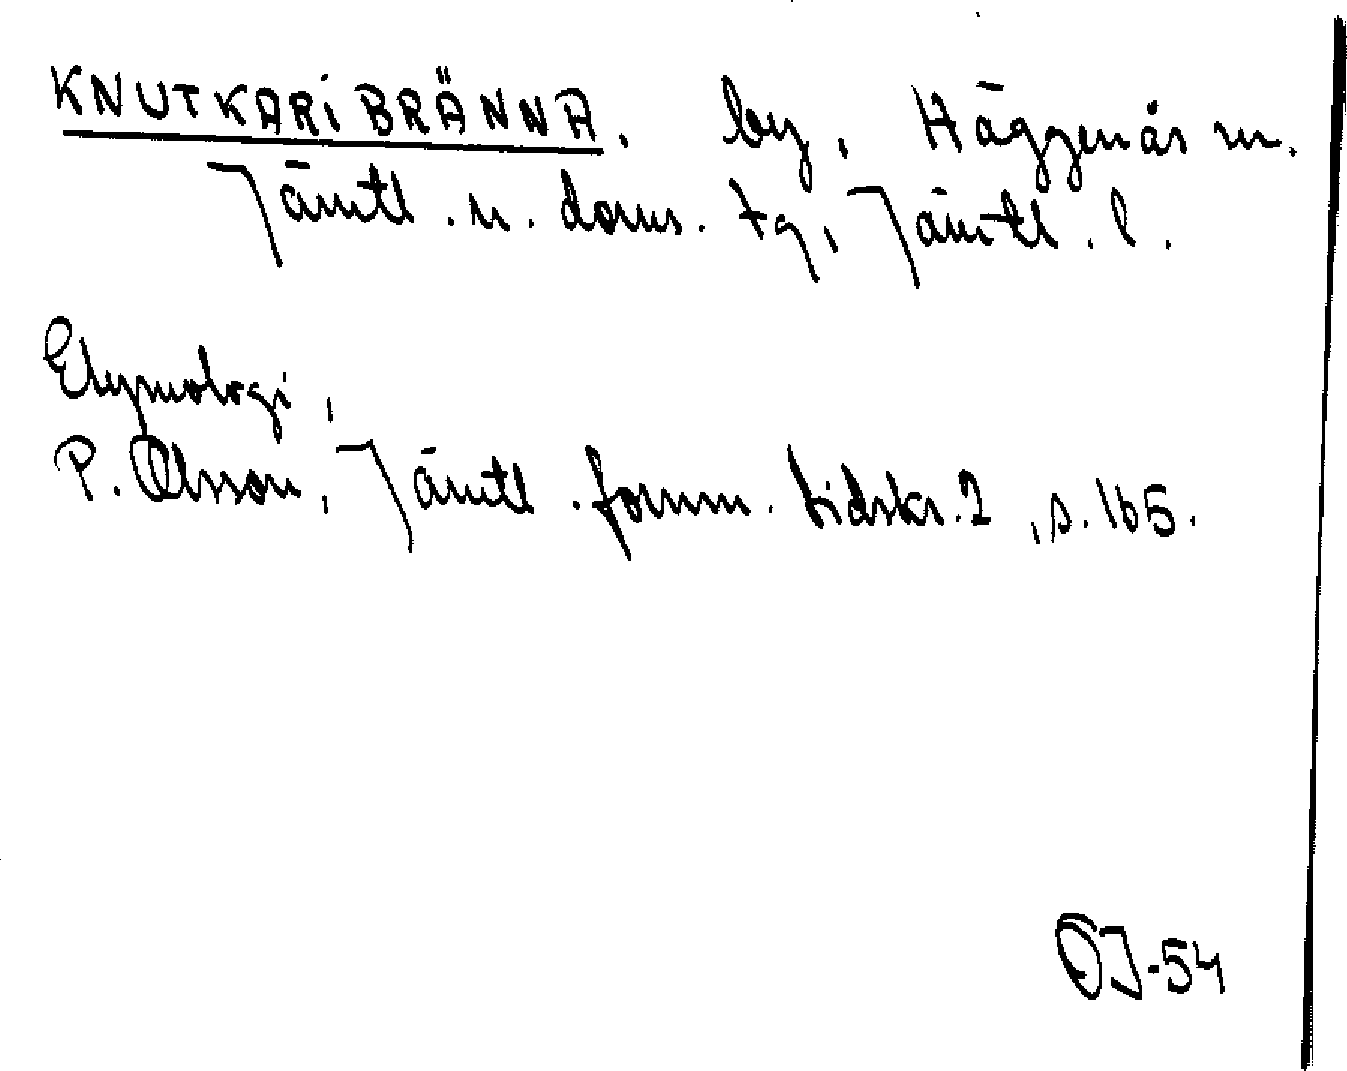 KNUTKARIBRÄNNA. by, Häggenås sn.
Jämtl. n. doms. tg, Jämtl. l.
Etymologi,
P. Olsson, Jämtl. fornm. tidskr. 2, s. 165.
ÖJ-54